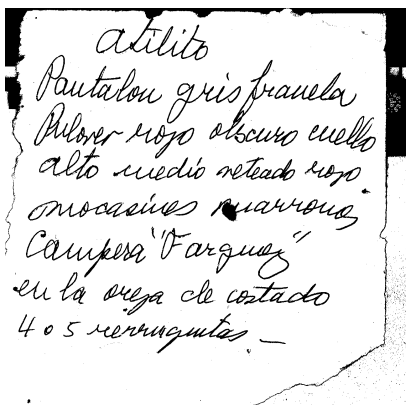 atilito
Pantalon gris franela
Pulover rojo obscuro cuello
alto medio veteado rojo
mocasines marrones
Campera "Farguez"
en la oreja de costado
4 o 5 verruguitas._